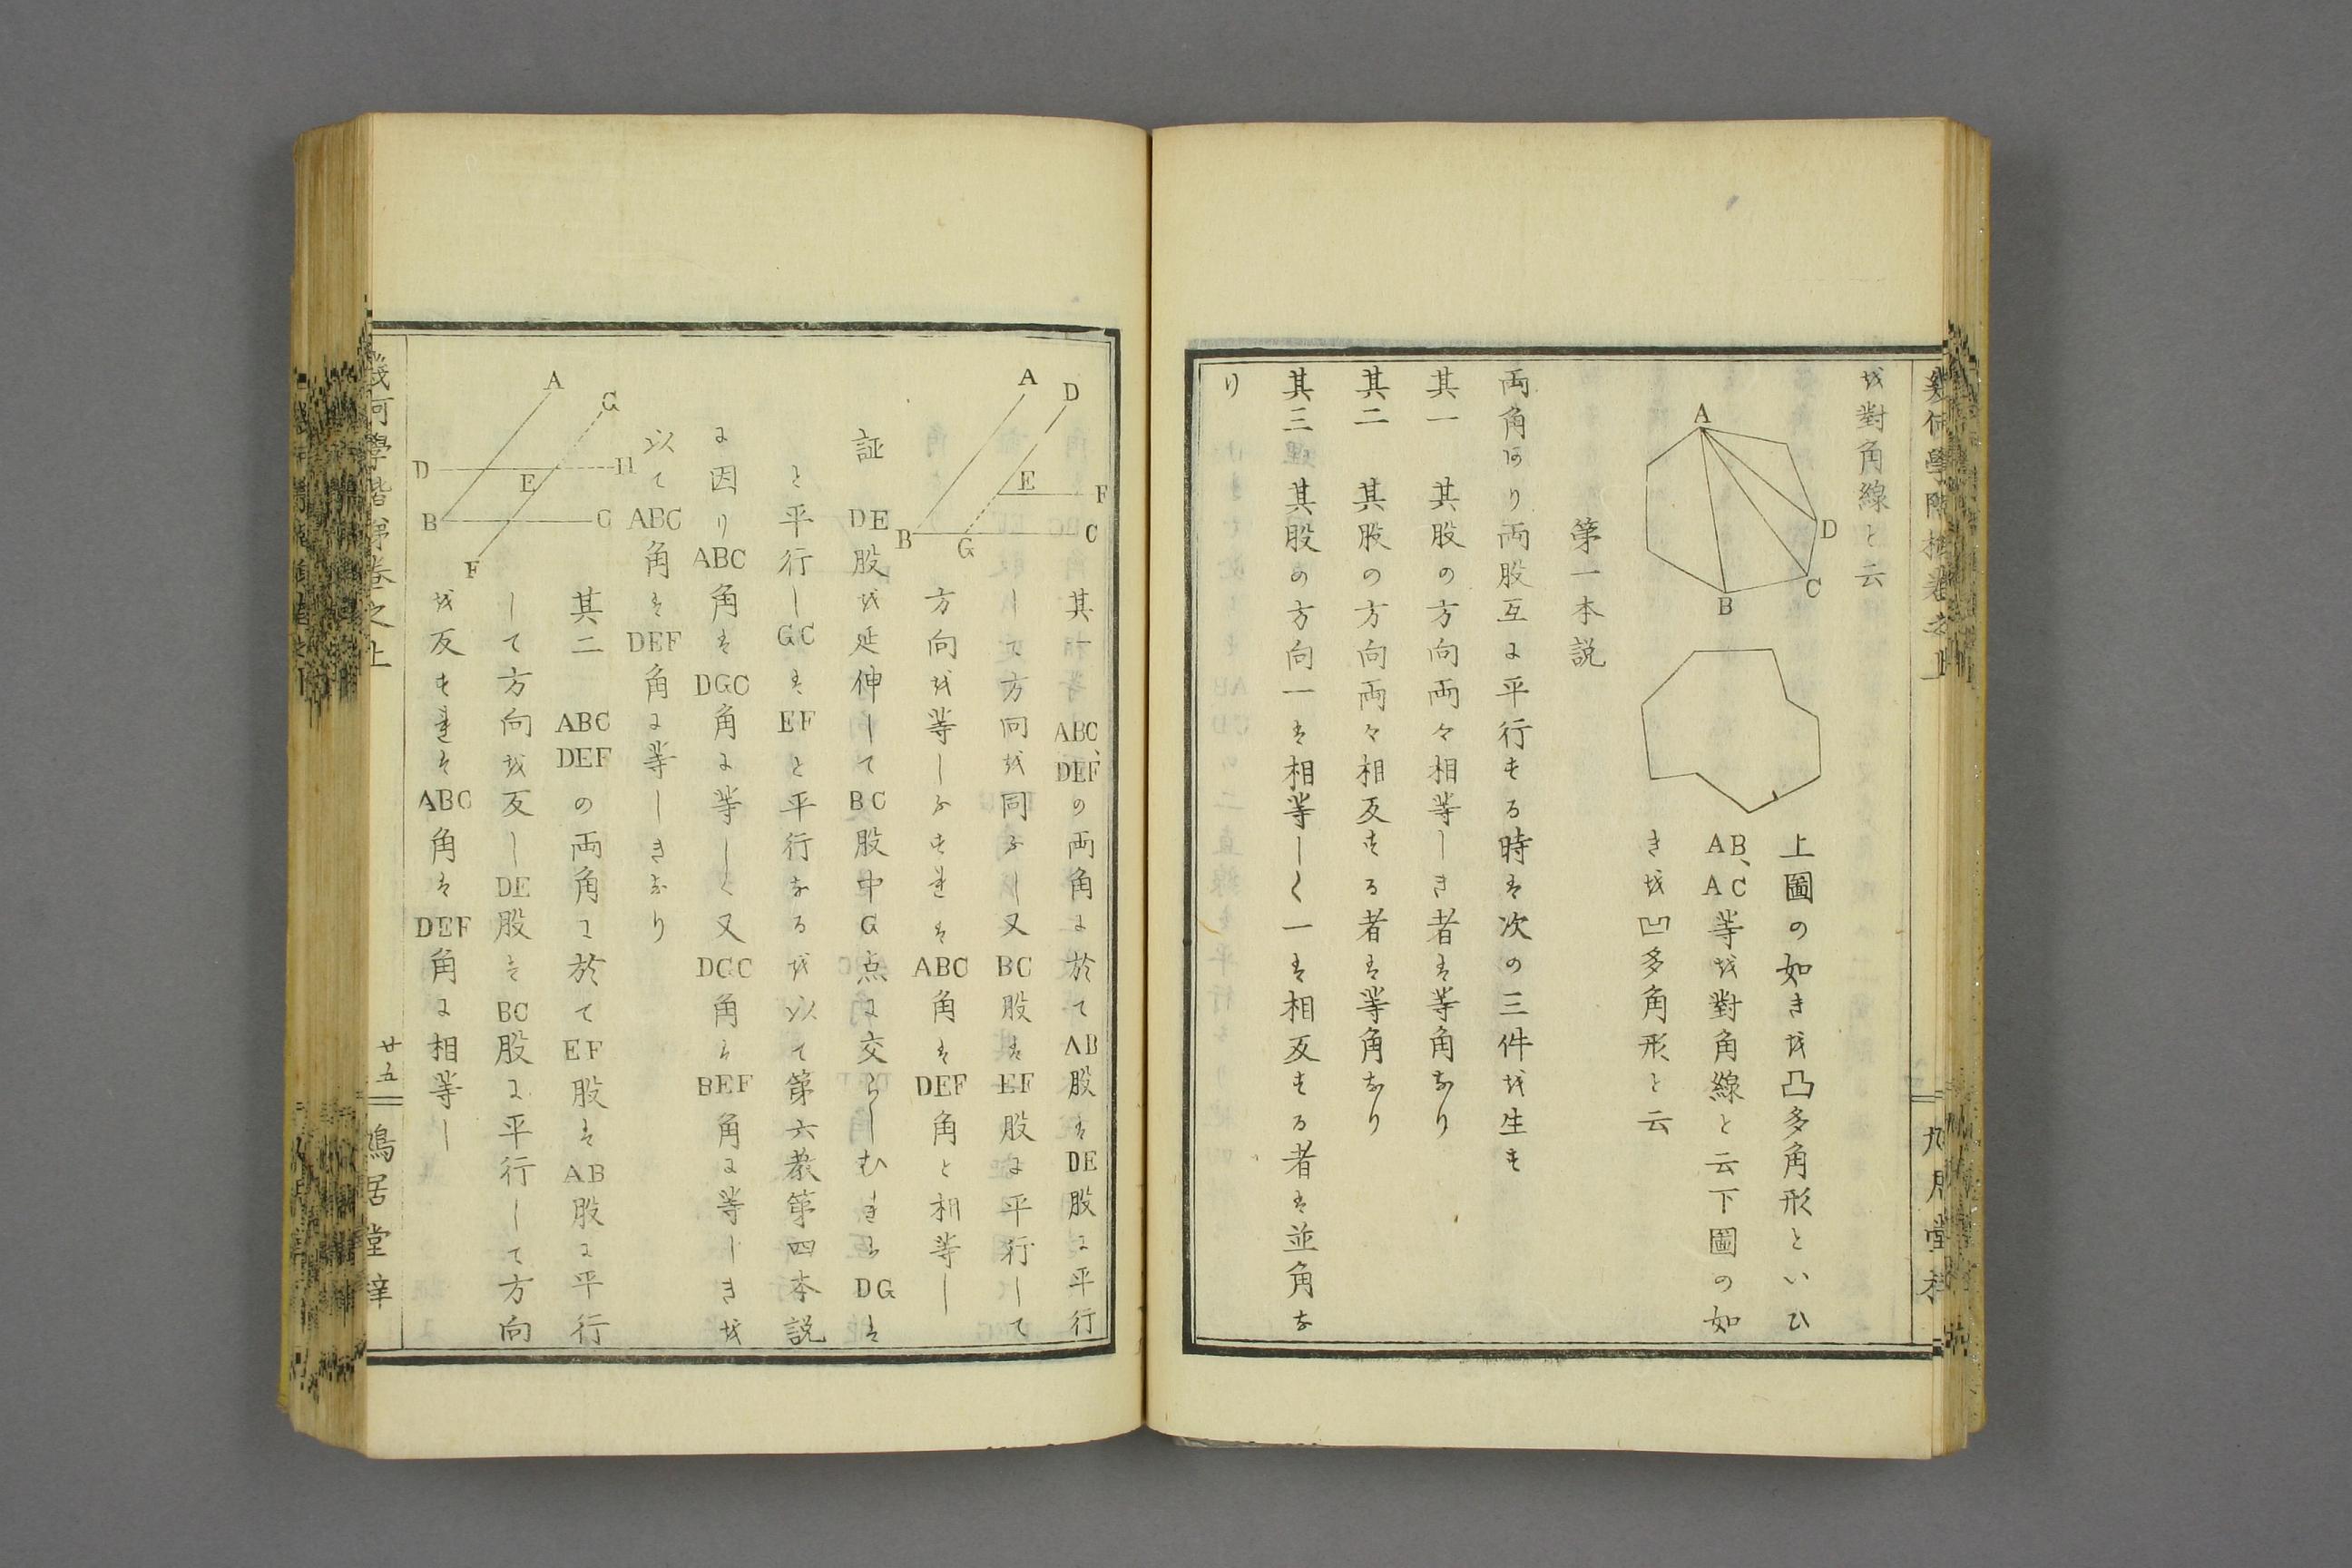 を對角線と云
A
D
C
B
上圖の如きを凸多角形といひ
AB、AC等を對角線と云下圖の如
きを凹多角形と云
第一本説
両角あり両股互に平行する時は次の三件を生す
其一 其股の方向両々相等しき者は等角なり
其二 其股の方向両々相反する者は等角なり
其三 其股の方向一は相等しく一は相反する者は並角な
り
A
D
E
F
B
G
C
其一 ABC、DEFの両角に於てAB股はDE股に平行
して方向を同ふし又BC股はEF股に平行して
方向を等ふすればABC角はDEF角と相等し
証 DE股を延伸してBC股中G点に交らしむればDGは
と平行しGCはEFと平行なるを以て第六教第四本説
に因りABC角はDGC角に等しく又DGC角はBEF角に等しきを
以てABC角はDEF角に等しきなり
A
G
D
H
E
B
C
F
其二 ABC DEFの両角に於てEF股はAB股に平行
して方向を反しDE股はBC股に平行して方向
を反すればABC角はDEF角に相等し
幾何學階梯巻之上
廿五